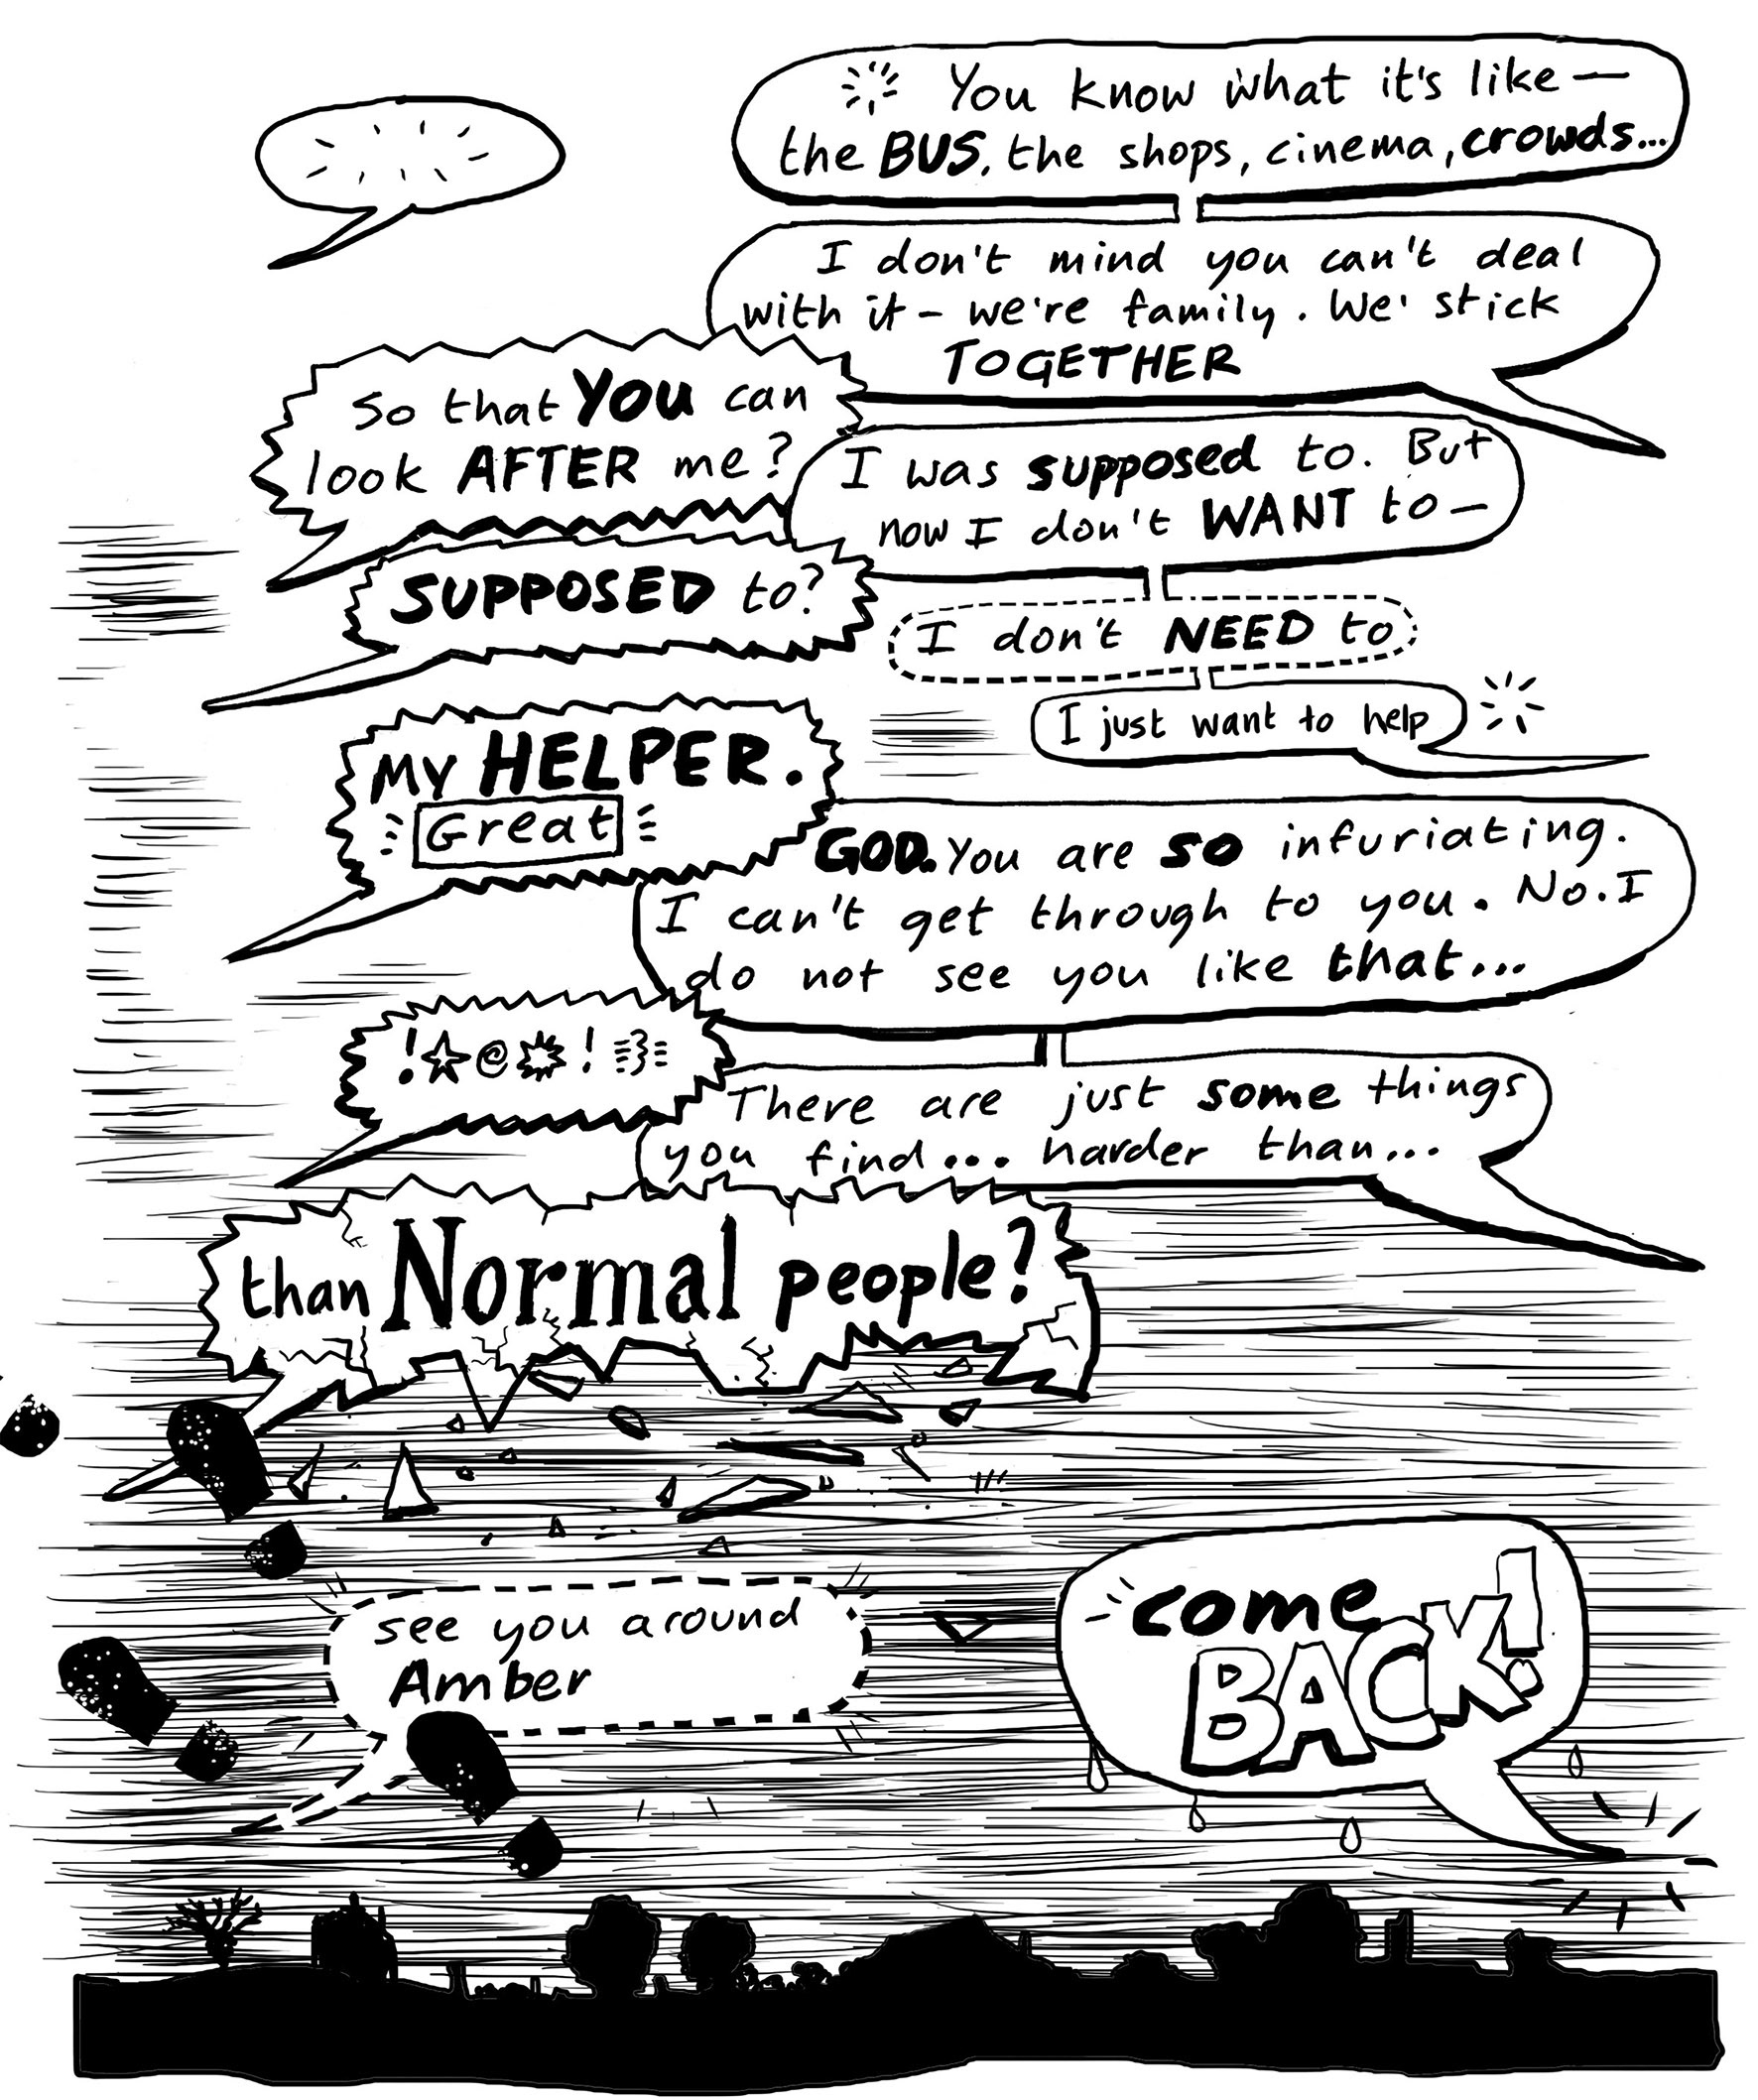 You know what it's like —
the BUS, the shops, cinema, crowds...
I don't mind you can't deal
with it – we're family. We' stick
TOGETHER
So that YOU can
look AFTER me?
I was supposed to. But
now I don't WANT to –
SUPPOSED to?
I don't NEED to
I just want to help
My HELPER.
Great
GOD. You are SO infuriating.
I can't get through to you. No. I
do not see you like that...
!☆@!
There are just some things
you find... harder than...
than Normal people?
see you around
Amber
come
BACK!